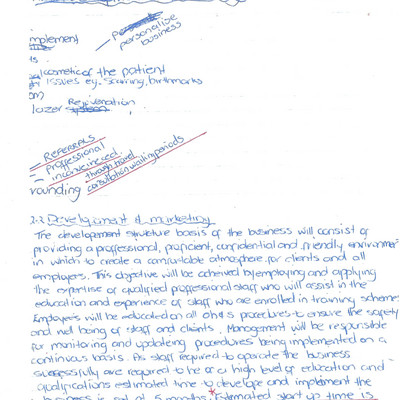 personalise
business
mplement
is
cosmetic of the patient
issues eg. scarring, birthmarks
om
lazer Rejuvenation
- REFERRALS
- Proffessional
- inconvenienced
through travel
consultation waiting periods
rounding
2.2 Development & marketing
The development structure basis of the business will consist of
providing a proffessional, proficient, confidential and friendly environmen
in which to create a comfortable atmosphere for clients and all
employers. This objective will be acheived by employing and applying
the expertise of qualified proffessional staff who will assist in the
education and experience of staff who are enrolled in training scheme
Employees will be educated on all OH&S procedures to ensure the safety
and well being of staff and clients. Management will be responsible
for monitoring and updateing procedures being implemented on a
continuous basis. As staff required to operate the business
successfully are required to be of a high level of education and
qualifications estimated time to develope and implement the
business is set at 5 months. Estimated start up time is